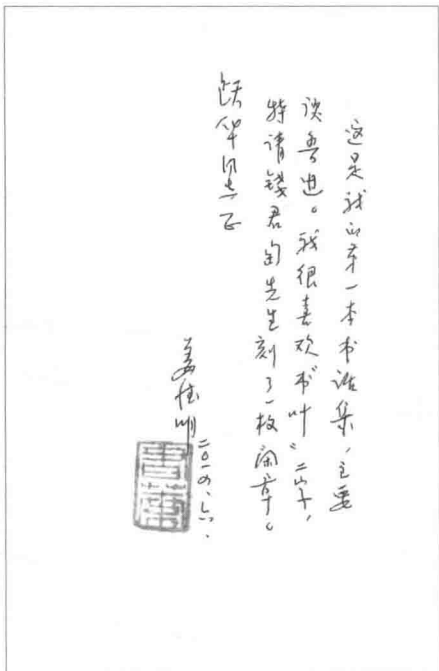 这是我的第一本书话集，主要
谈鲁迅。我很喜欢“书叶”二字，
特请钱君匋先生刻了一枚闲章。
跃华同志正
姜德明
二〇一四、六、
書葉